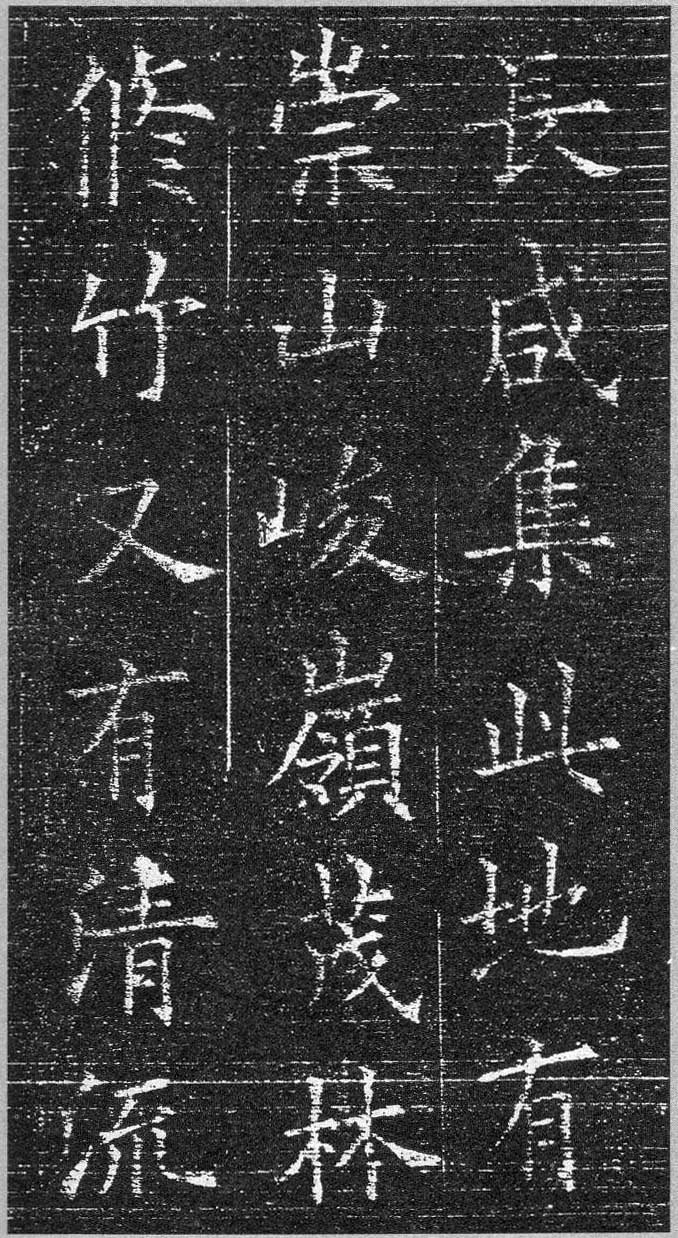 長咸集此地有
崇山峻嶺茂林
脩竹又有清流